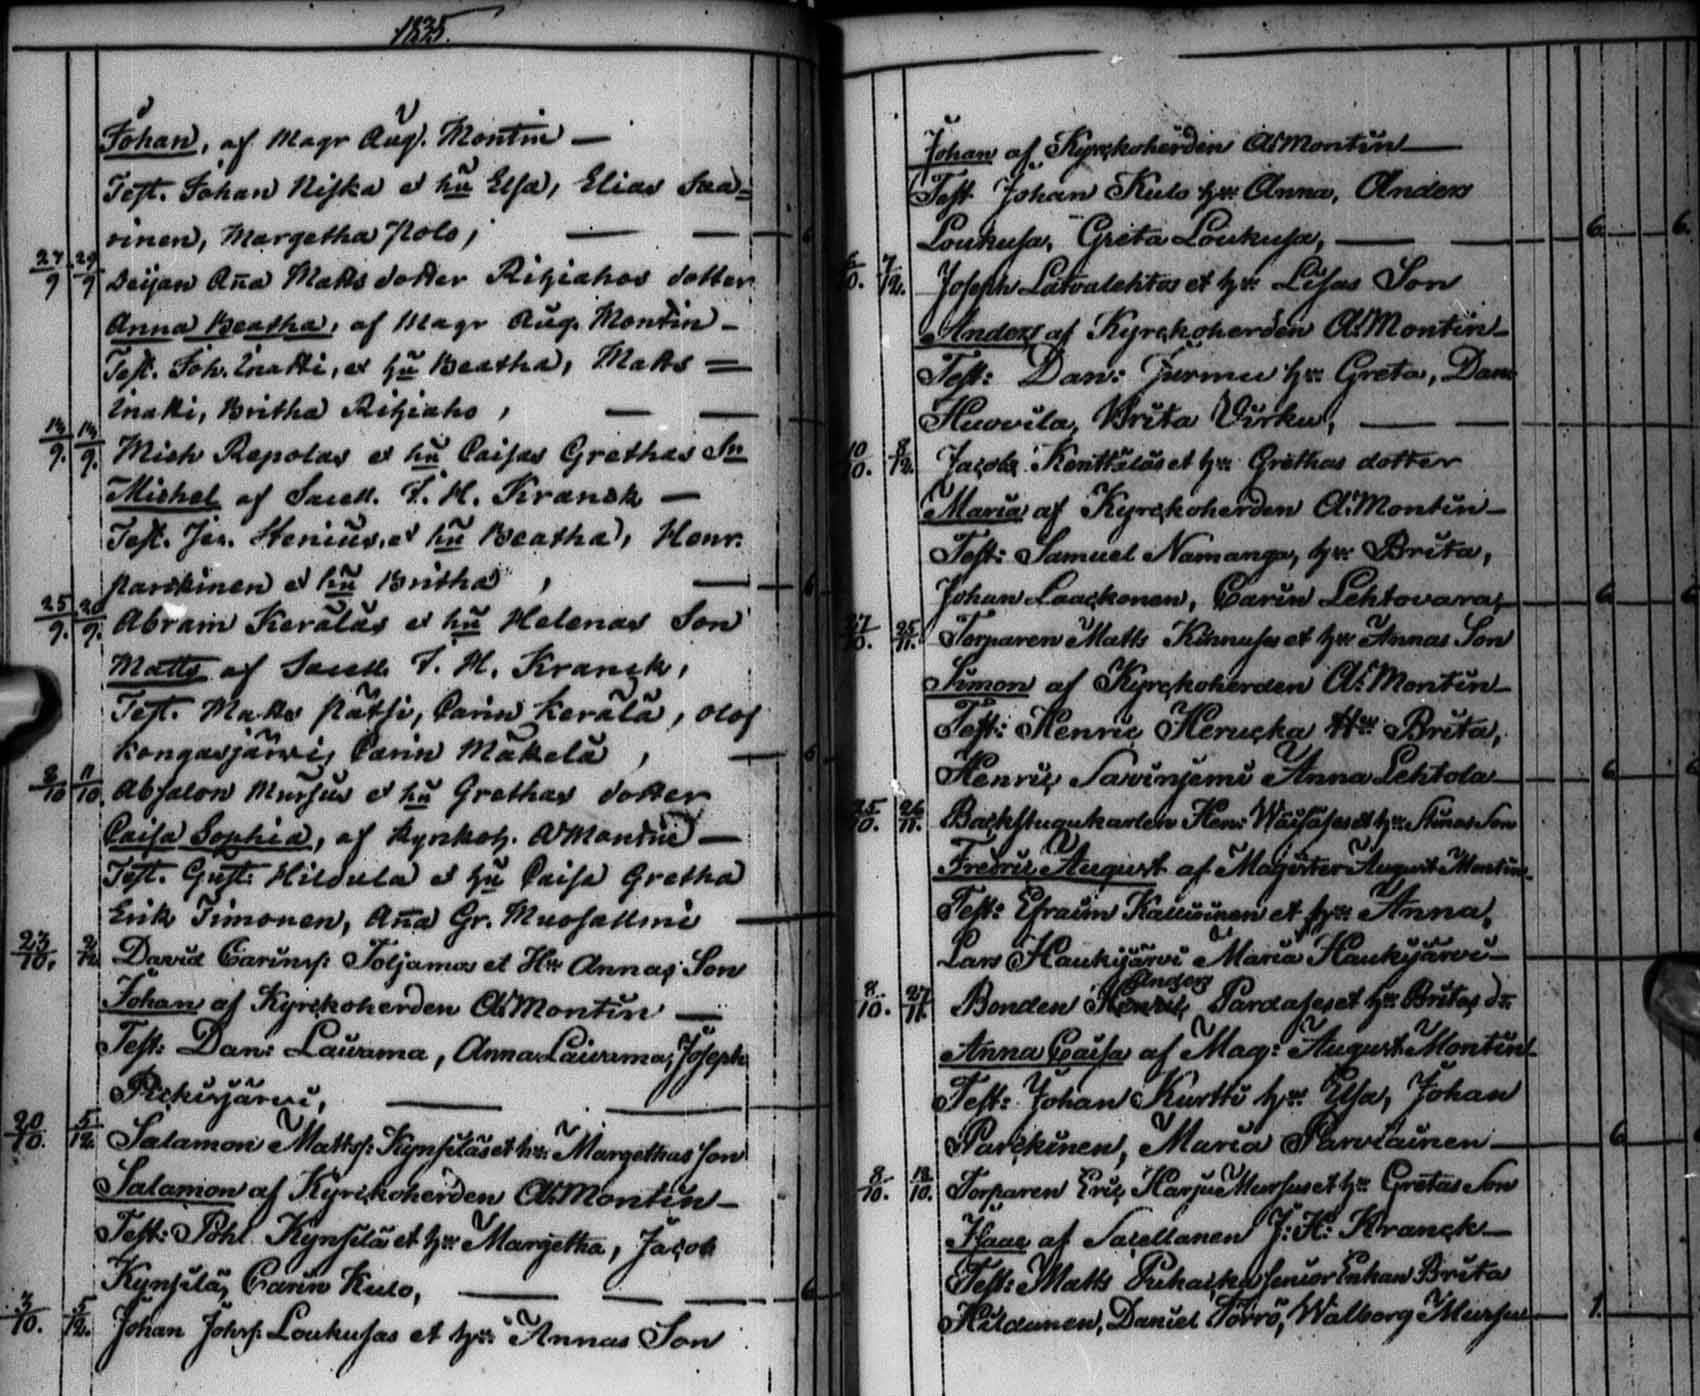 1835.
Johan, af Magr Aug. Montin —
Test. Johan Niska et hu Elsa, Elias Saa=
rinen, Margetha Polo;
27/9 29/9 Deijan Aña Matts dotter Rihiahos dotter
Anna Beatha, af Magr Aug. Montin —
Test. Joh. Inatti, et hu Beatha, Matts =
Inatti, Britha Rihiaho,
14/9. 14/9. Mich Repolas et hu Caisas Grethas Sn
Michel af Sacell. J. H. Kranck —
Test. Jer. Stenius, et hu Beatha, Henr.
Parckinen et hu Britha,
25/9. 26/9. Abram Keräläs et hu Helenas Son
Matts af Sacell. J. H. Kranck,
Test. Matts Pätsi, Carin Kerälä, Olof
Kongasjärvi, Carin Mäkelä,
8/10 11/10. Absalon Mursus et hu Grethas dotter
Caisa Sophia, af Kyrkoh. A Montin —
Test. Gust. Hildula et hu Caisa Gretha
Erik Timonen, Aña Gr. Muosallmi
23/10. David Carinsf: Toljamos et Hu Annas Son
Johan af Kyrckoherden A: Montin —
Test: Dan: Laurama, Anna Laurama, Joseph
Pickusjärvi,
20/10. 5/12 Salamon Mattsf: Kynsiläs et hu: Margethas Son
Salamon af Kyrckoherden A: Montin —
Test: Pohl Kynsilä et hu: Margetha, Jacob
Kynsilä, Carin Kulo, 6
3/10. 5/12. Johan Johsf: Loukusas et hu: Annas Son
Johan af Kyrckoherden A: Montin —
Test Johan Kulo hu: Anna, Anders
Loukusa, Greta Loukusa, 6. 6.
7/12. Joseph Latvalehtos et hu: Lisas Son
Anders af Kyrckoherden A: Montin —
Test: Dan: Jurmu hu: Greta, Dan:
Huovila, Brita Virku,
10/10. 8/12. Jacob Kenttäläs et hu: Grethas dotter
Maria af Kyrckoherden A: Montin —
Test: Samuel Namanga, hu: Brita,
Johan Laackonen, Carin Lehtovara, 6
27/10. 25/11. Torparen Matts Kinnuses et hu: Annas Son
Simon af Kyrckoherden A: Montin —
Test: Henric Herucka Hu: Brita,
Henric Savinjemi Anna Lehtola 6
25/10. 26/11. Backstugukarlen Hen: Wäisäses et hu: Stinas Son
Fredric August af Magister August Montin
Test: Efraim Kallioinen et hu: Anna,
Lars Haukijärvi Maria Haukijärvi —
8/10. 27/11. Bonden Henric Anders Pardases et hu: Britas dr
Anna Caisa af Mag: August Montin
Test: Johan Kurtti hu: Elsa, Johan
Parckinen, Maria Parviainen — 6
8/10. 12/10. Torparen Eric Harju Mursus et hu: Gretas Son
Isaac af Sacellanen J: H: Kranck —
Test: Matts Puhacka senior Enkan Brita
Hildunen, Daniel Törrö, Walborg Mursu 1.